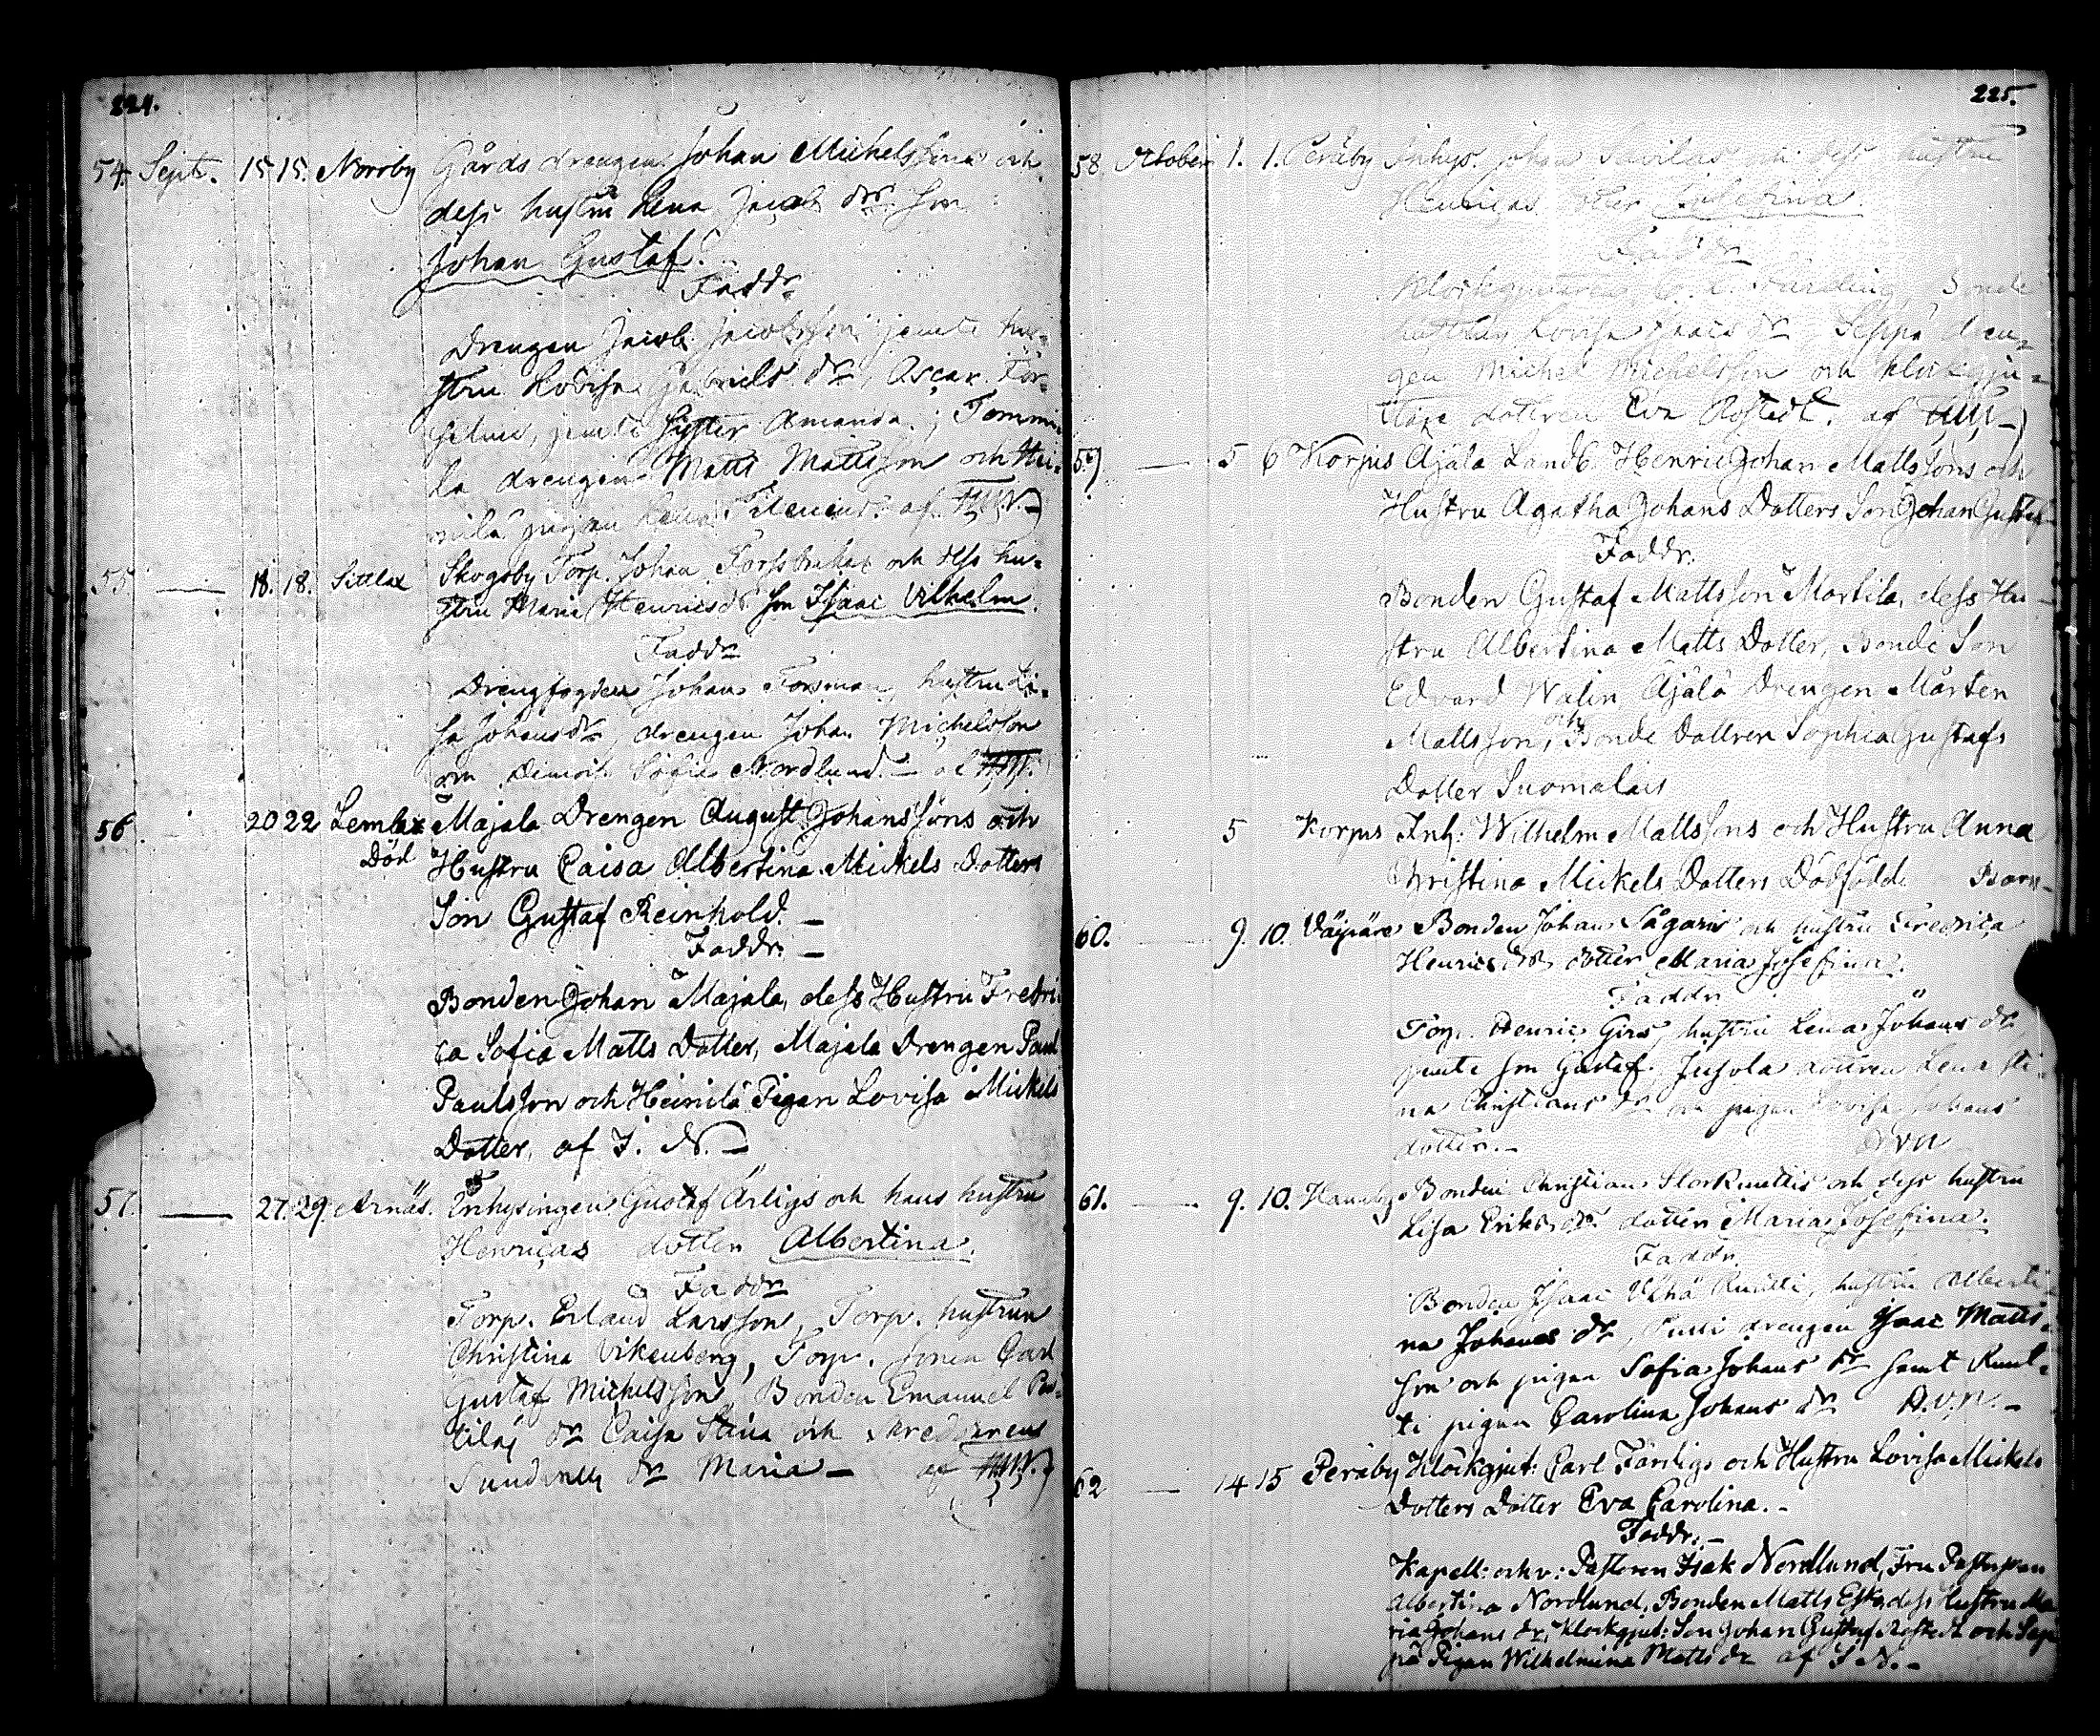 224.
54. Sept. 15 15. Norrby Gårds drengen Johan Michelssons och
dess hustru Lena Jacobs dr. Son
Johan Gustaf.
Faddr
Drengen Jacob Jacobsson jemte hu-
stru Lovisa Gabriels dr, Oscar
jemte Syster Amanda, Tommi-
la drengen Matts Mattsson och Hei-
nilä pigan Lena af
55. — 18. 18. Sittlax Skogsby Torp. Johan och dess hu-
stru Maria Henricsdr Son Isaac Vilhelm.
Faddr
Drengfogden Johan Forsman, hustru Li-
sa Johansdr, drengen Johan Michelsson
Sofie Nordlund. — af
56. 20 22 Lemlax Majala Drengen August Johanssons och
Död Hustru Caisa Albertina Mickels Dotters
Son Gustaf Reinhold. —
Faddr. —
Bonden Johan Majala, dess Hustru Fredri
ca Sofia Matts Dotter, Majala Drengen Paul
Paulsson och Heinilä Pigan Lovisa Mickels
Dotter, af I. N. —
57. — 27. 29. Arnäs. Inhysingen Gustaf Ärligs och hans hustru
Henricas dotter Albertina.
Faddr
Torp. Erland Larsson, Torp. hustrun
Christina Vikenberg, Torp. sonen Carl
Gustaf Michelsson, Bonden Emanuel
dr Caisa Stina och skreddarens
dr Maria — af
225.
58 October 1. 1. Peräby Inhys. Johan och dess hustru
Henricas dotter Josefina.
Faddr
Klockgjutaren Bonde
hustrun Lovisa Isacs dr, Seppä dren-
gen Michel Michelsson och klockgju-
tare dottren Eva Rostedt. af
59 — 5 6 Korpis Äjälä Landb. Henric Johan Mattssons och
Hustru Agatha Johans Dotters Son Johan Gustaf
Faddr.
Bonden Gustaf Mattsson Martila, dess Hu-
stru Albertina Matts Dotter, Bonde Son
Edvard Walin, Äjälä Drengen Mårten
Mattsson, och Bonde Dottren Sophia Gustafs
Dotter Suomalais
5 Korpis Inh: Wilhelm Mattssons och Hustru Anna
Christina Mickels Dotters Dödfödde Barn —
60. — 9. 10. Bonden Johan och hustru Fredrica
Henrics dr dotter Maria Josefina.
Faddr
Torp. Henric Girs, hustru Lena Johans dr
jemte son Gustaf, Jusola dottren Lena Sti-
na Christians dr och pigan Lovisa Johans
dotter. —
61. — 9. 10. Bonden Christian StorKnuttis och dess hustru
Lisa Eriks dr. dotter Maria Josefina.
Faddr.
Bonden Isaac Vähä Knutti, hustru Alberti-
na Johans dr, drengen Isaac Matts-
son och pigan Sofia Johans dr samt Knut-
ti pigan Carolina Johans dr A.v.N. —
62 — 14 15 Peräby Klockgjut: Carl Färdigs och Hustru Lovisa Mickels
Dotters Dotter Eva Carolina. —
Faddr. —
Kapell: och v: Pastoren Isak Nordlund, Fru Pastorskan
Albertina Nordlund, Bonden Matts Esko, dess Hustru Ma
ria Johans dr, Klockgjut: Son Johan Gustaf Rostedt och Sep
pä Pigan Wilhelmina Matts dr af I N. —